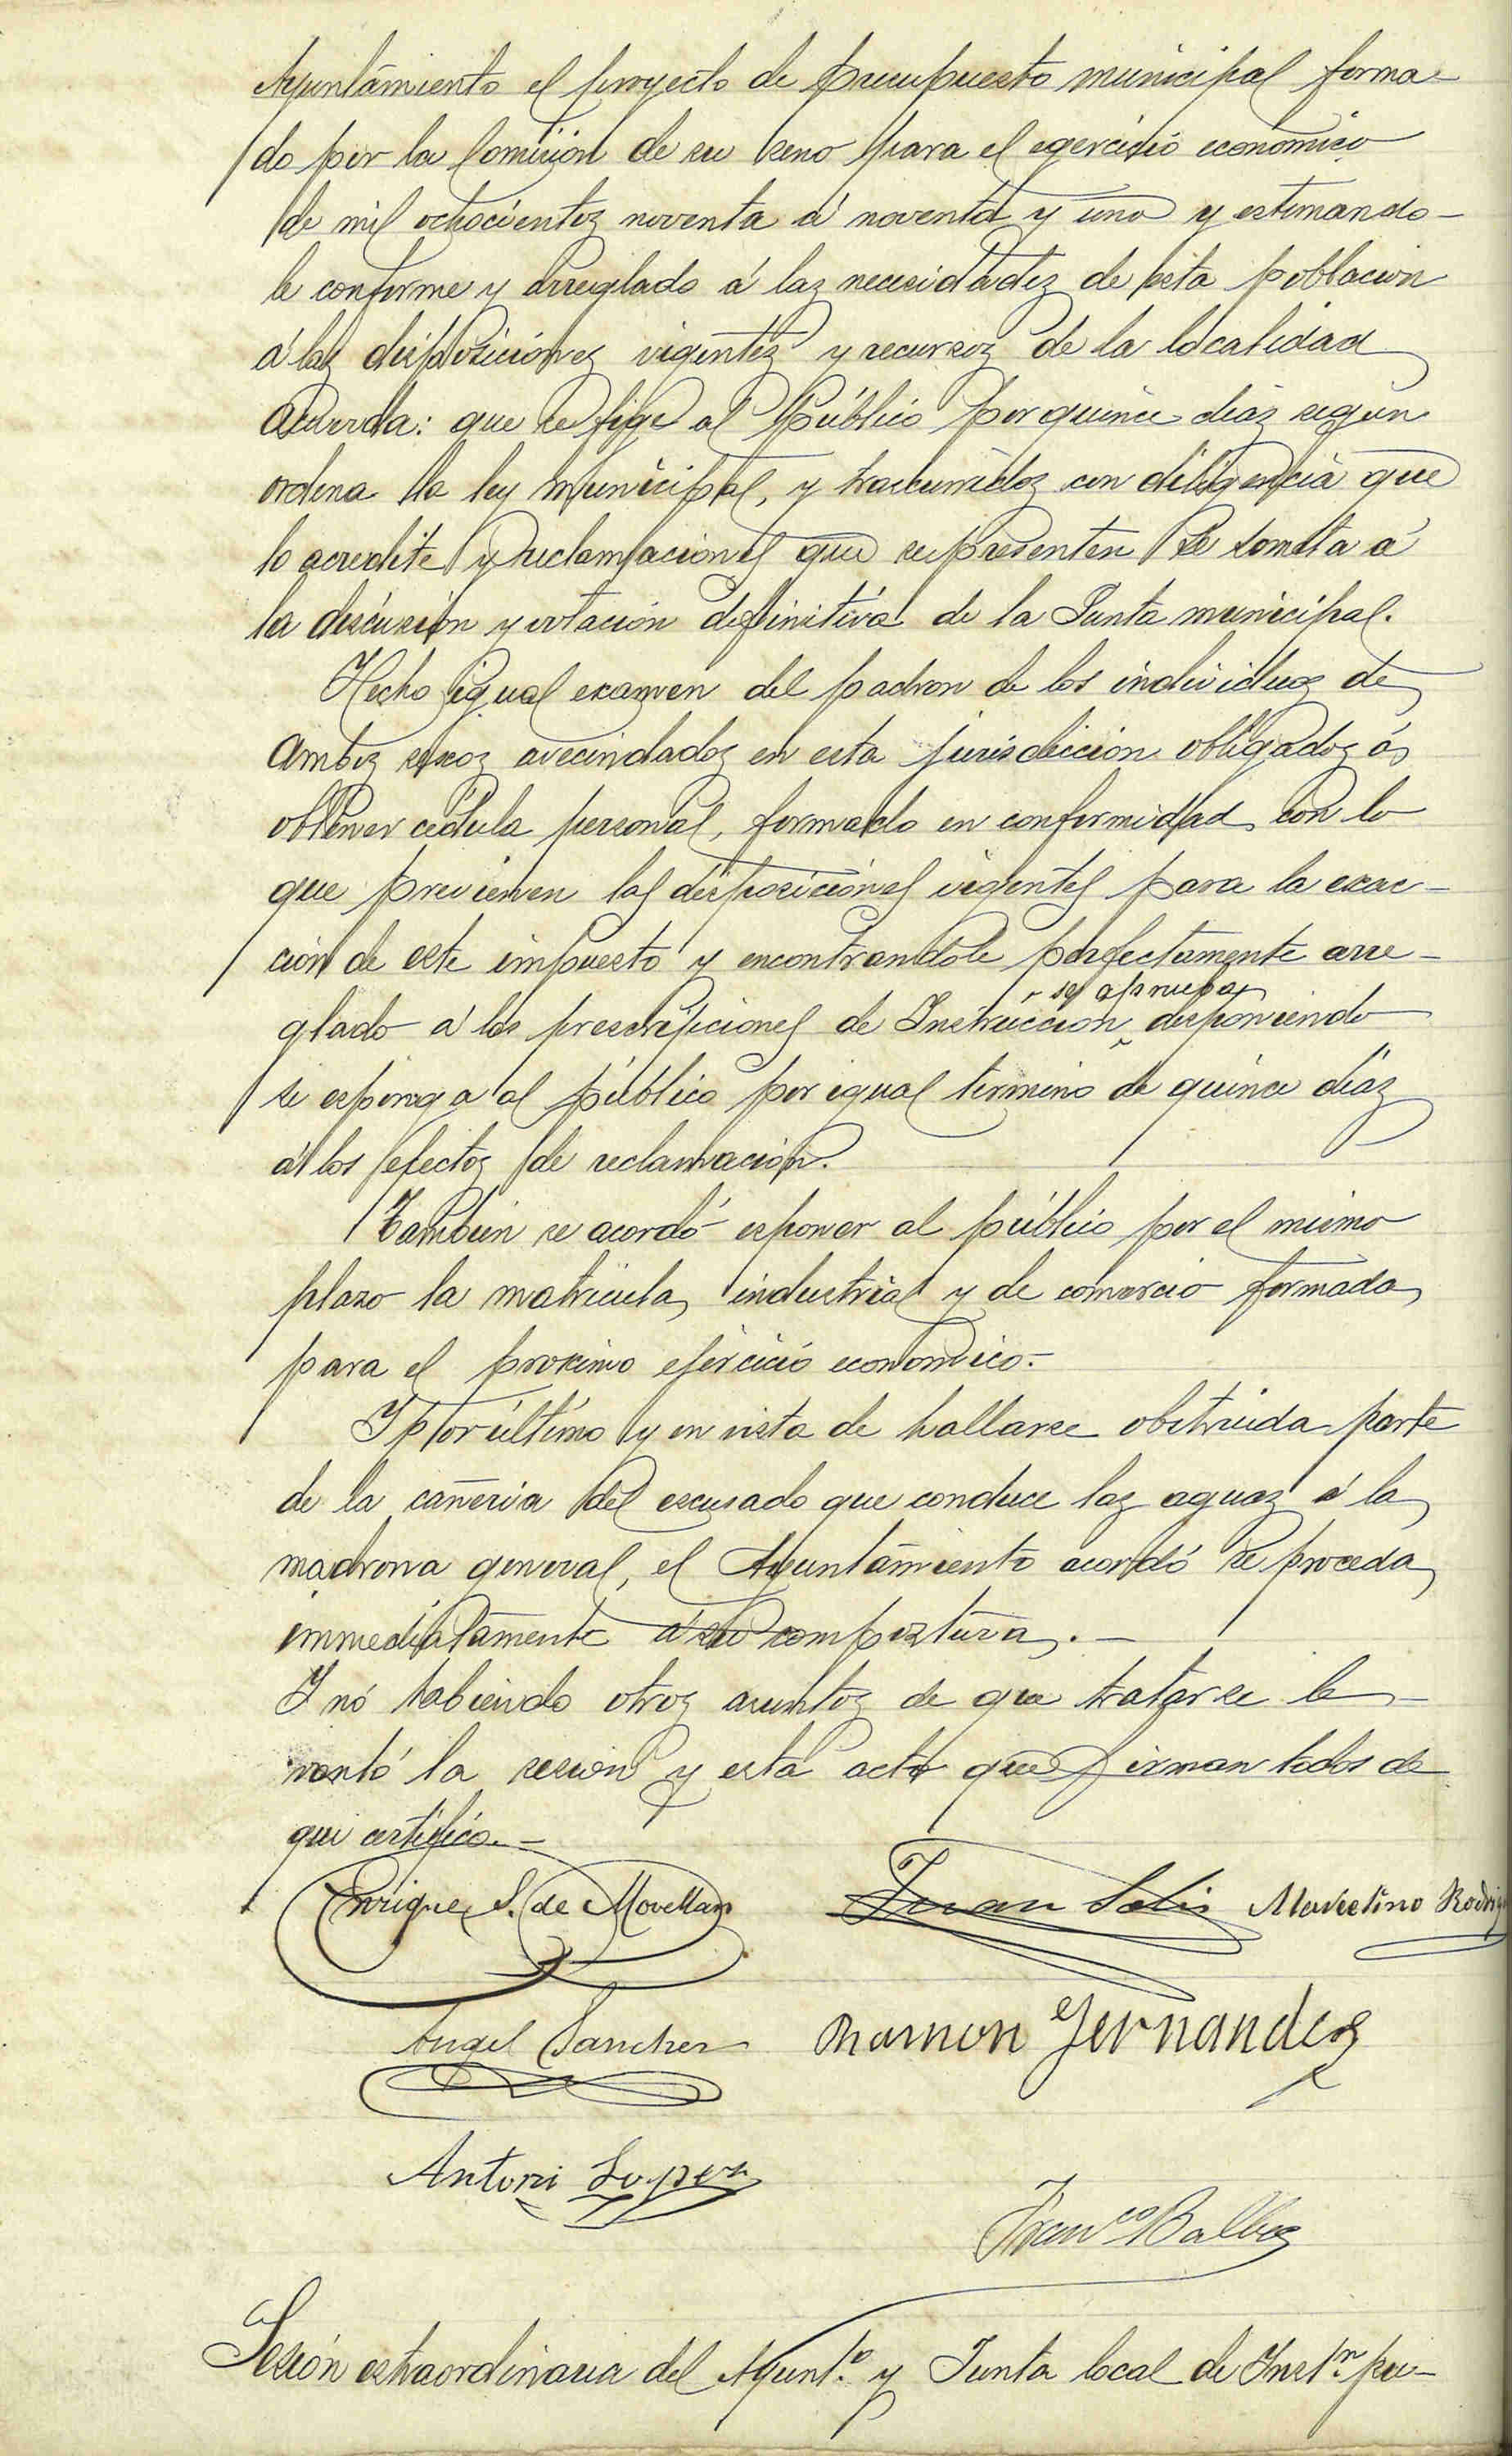 Ayuntamiento el proyecto de presupuesto municipal forma-
do por la Comision de su seno para el egercicio economico
de mil ochocientos noventa á noventa y uno y estimando-
le conforme y arreglado á las necesidades de esta poblacion
á las disposiciones vigentes y recursos de la localidad
acuerda: que se fige al público por quince dias segun
ordena la ley municipal, y trascurridos con diligencia que
lo acredite y reclamaciones que se presenten se someta á
la discusion y votacion definitiva de la Junta municipal.
Hecho igual examen del padron de los individuos de
ambos sexos avecindados en esta jurisdiccion obligados á
obtener cédula personal, formado en conformidad con lo
que previenen las disposiciones vigentes para la exac-
ción de este impuesto y encontrandole perfectamente arre-
se aprueba
glado á las prescripciones de Instruccion disponiendo
se esponga al público por igual termino de quince dias
á los efectos de reclamación.
Tambien se acordó esponer al público por el mismo
plazo la matricula industrial y de comercio formada
para el proximo ejercicio economico.-
Y por último y en vista de hallarse obstruida parte
de la cañeria del escusado que conduce las aguas á la
madrona general, el Ayuntamiento acordó se proceda
immediatamente á su compostura.-
Y nó habiendo otros asuntos de que tratar se le-
vantó la sesion y esta acta que firman todos de
que certifico.-
Enrique S. de Movellan Juan Solis Marcelino Rodrig
Angel Sanchez Ramon Fernandez
Antoni Lopez
Fran^co Balbos
Sesión estraordinaria del Ayunt.º y Junta local de Inst.n pu-